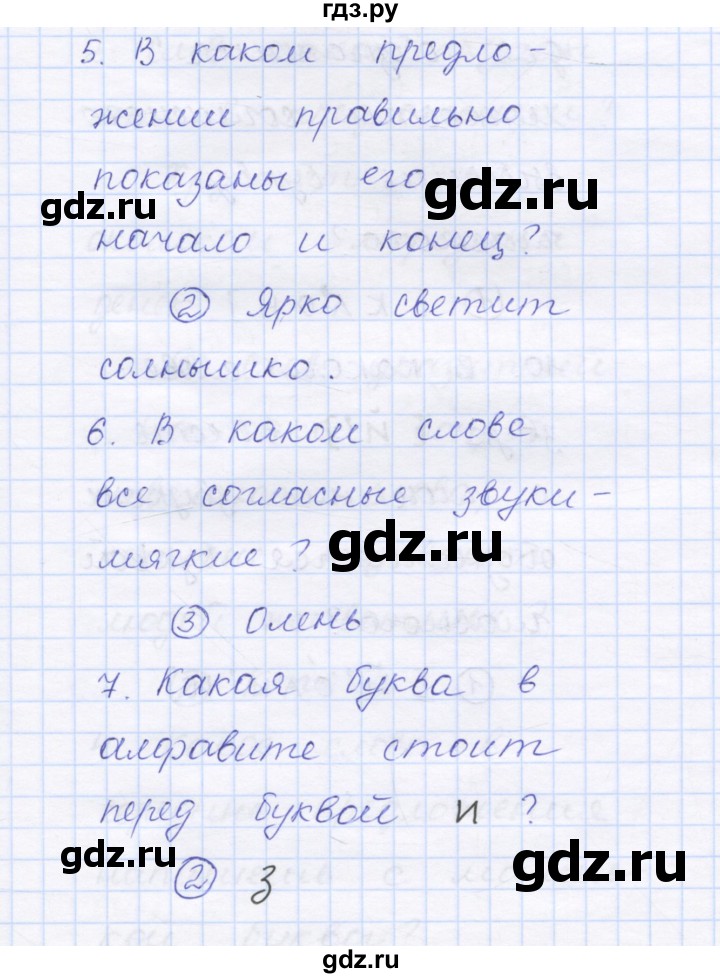 гдз.ру
5. В каком предло-
жении правильно
показаны его
gdz.ru
gdz.ru
начало и конец?
② Ярко светит
солнышко.
6. В каком слове
все согласные звуки -
мягкие?
gdz.ru
③ Олень
7. Какая буква в
алфавите стоит
перед буквой и?
gdz.ru
gdz.ru
② З
gdz.ru